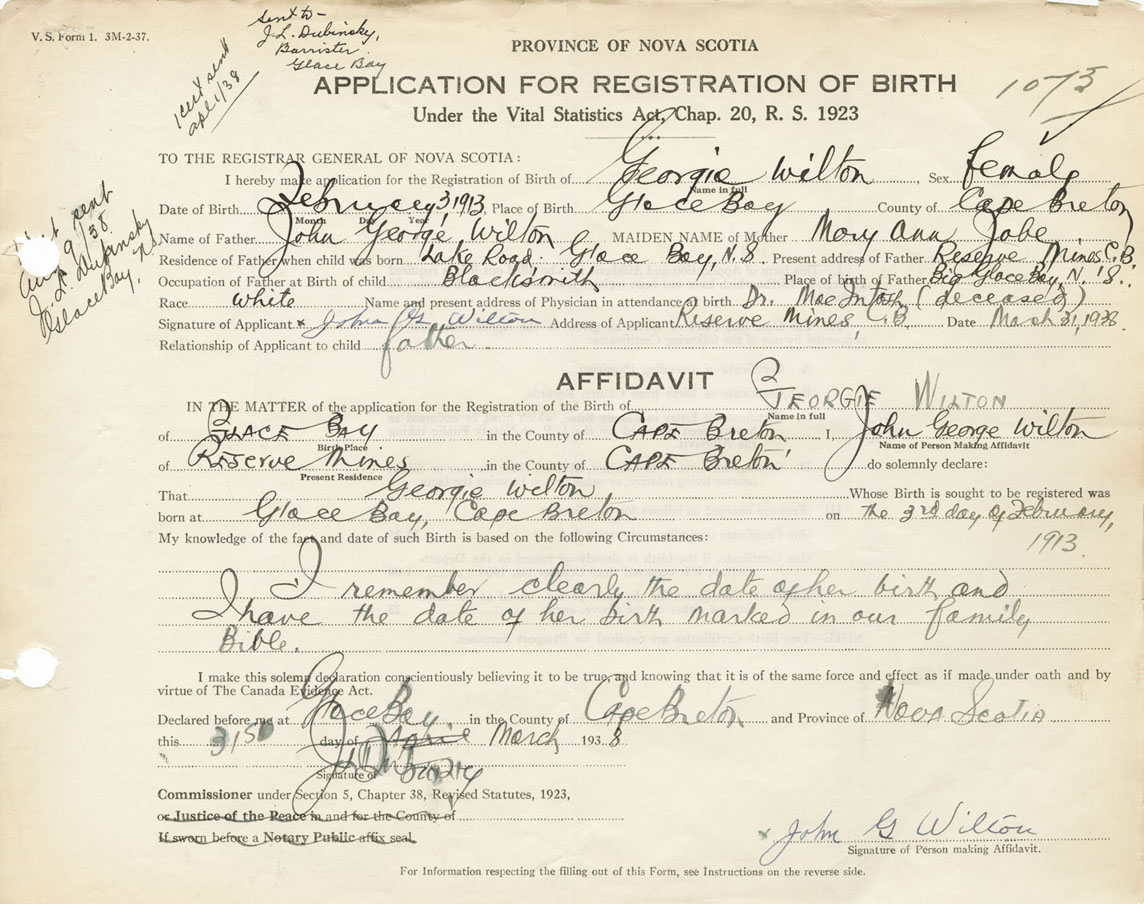 V. S. Form 1. 3M-2-37.
Sent to -
J. L. Dubinsky,
Barrister
Glace Bay
1 cert sent
apl 1/38
PROVINCE OF NOVA SCOTIA
APPLICATION FOR REGISTRATION OF BIRTH
Under the Vital Statistics Act, Chap. 20, R. S. 1923
TO THE REGISTRAR GENERAL OF NOVA SCOTIA:
I hereby make application for the Registration of Birth of Georgie Wilton, Sex female
Name in full
Date of Birth February 3 1913, Place of Birth Glace Bay County of Cape Breton
Month Day Year
Name of Father John George Wilton MAIDEN NAME of Mother Mary Ann Jobe
Residence of Father when child was born Lake Road. Glace Bay, N.S. Present address of Father Reserve Mines C.B.
Occupation of Father at Birth of child Blacksmith Place of birth of Father Big Glace Bay, N.S.
Race white Name and present address of Physician in attendance at birth Dr. MacIntosh (deceased)
Signature of Applicant x John G Wilton Address of Applicant Reserve Mines, C.B. Date March 31, 1938
Relationship of Applicant to child father.
sent
9/38
Dubinsky
Glace Bay, N.S.
AFFIDAVIT
IN THE MATTER of the application for the Registration of the Birth of GEORGIE WILTON
Name in full
of GLACE BAY in the County of CAPE Breton I, John George Wilton
Birth Place
Name of Person Making Affidavit
of Reserve Mines in the County of CAPE Breton do solemnly declare:
Present Residence
That Georgie Wilton Whose Birth is sought to be registered was
born at Glace Bay, Cape Breton on the 3rd day of February,
1913.
My knowledge of the fact and date of such Birth is based on the following Circumstances:
I remember clearly the date of her birth and
I have the date of her birth marked in our family
Bible.
I make this solemn declaration conscientiously believing it to be true, and knowing that it is of the same force and effect as if made under oath and by
virtue of The Canada Evidence Act.
Declared before me at Glace Bay in the County of Cape Breton and Province of Nova Scotia
this 31st day of April March 1938
Signature of
Commissioner under Section 5, Chapter 38, Revised Statutes, 1923,
or Justice of the Peace in and for the County of
If sworn before a Notary Public affix seal.
x John G Wilton
Signature of Person making Affidavit.
For Information respecting the filling out of this Form, see Instructions on the reverse side.